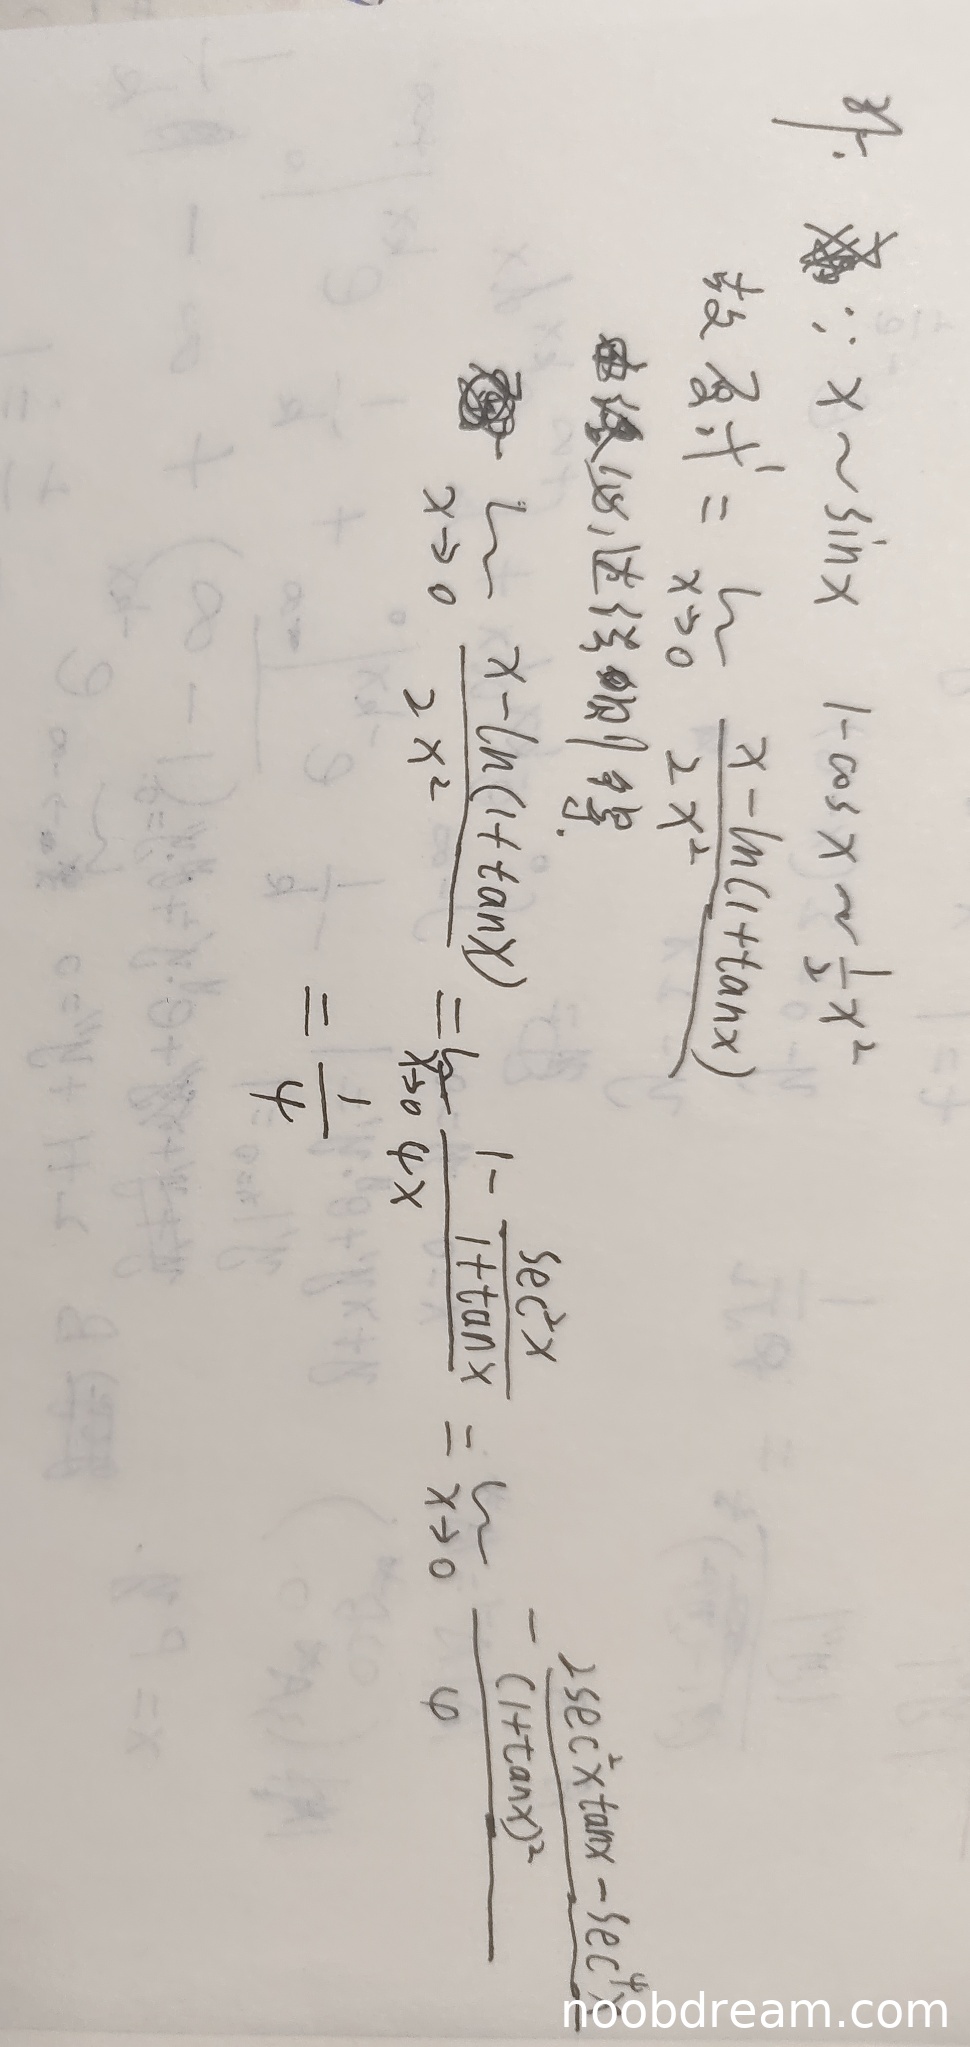 解. ∵ x ~ sinx 1-cosx ~ 1/2 x²
故原式 = lim x→0 (x-ln(1+tanx))/(2x²)
由洛必达法则得.
lim x→0 (x-ln(1+tanx))/(2x²) = lim x→0 (1 - sec²x/(1+tanx))/(4x) = lim x→0 (- (2sec²xtanx-sec⁴x)/(1+tanx)²)/4
= 1/4
noobdream.com